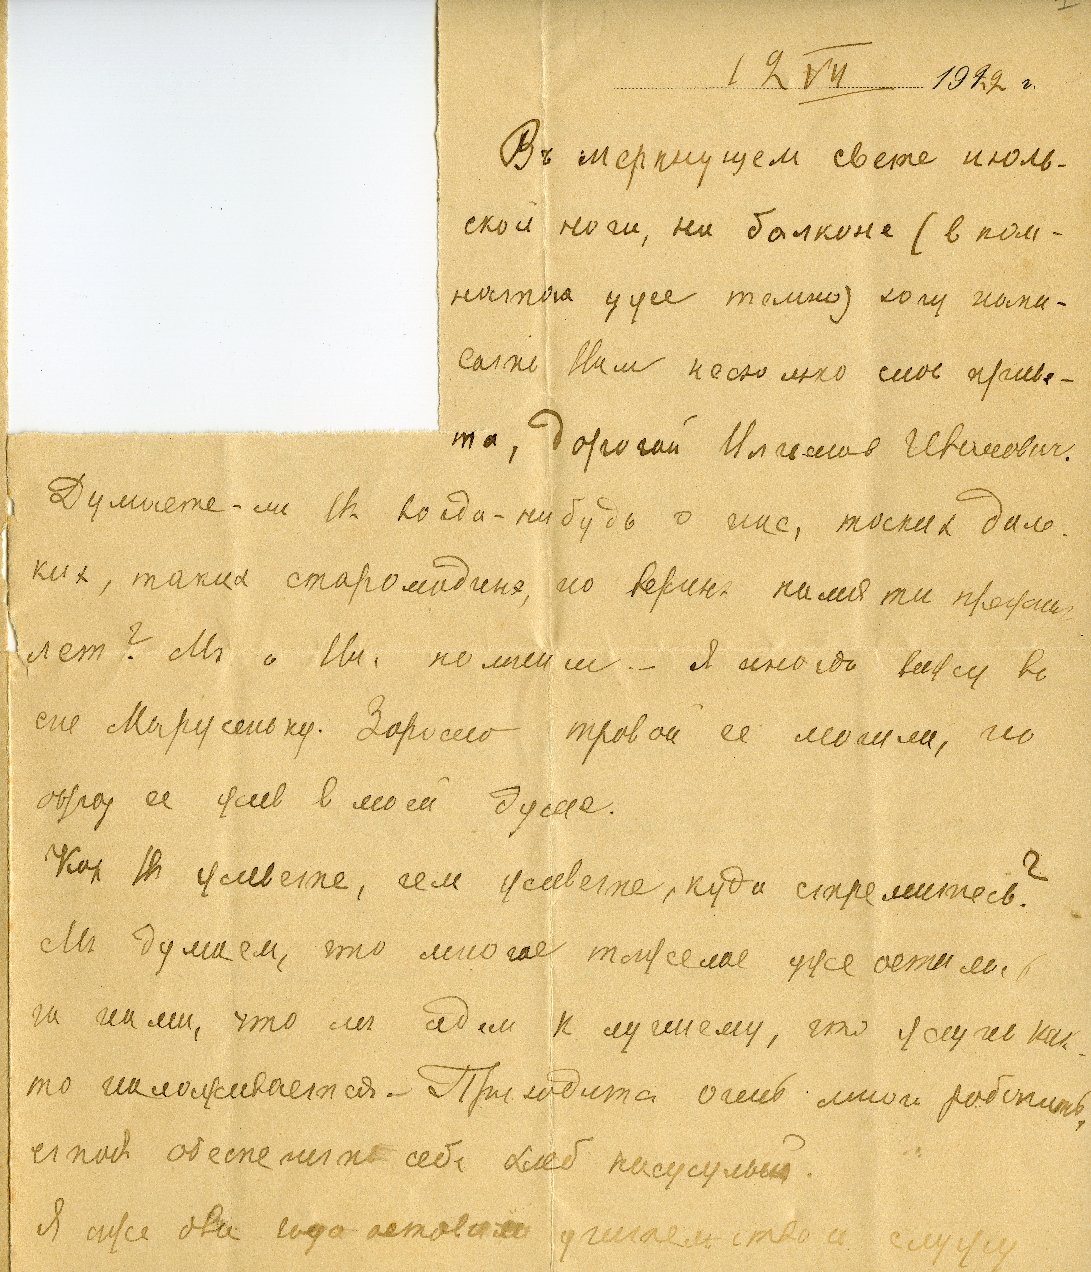 12 VII 1922 г.
Въ меркнущем свете июль-
ской ночи, на балконе (в ком-
натах уже темно) хочу напи-
сать Вам несколько слов приве-
та, дорогой Иванович.
Думаете-ли Вы когда-нибудь о нас, таких дале-
ких, таких старомодных, но верных памяти прежних
лет? Мы о Вас помним. – Я иногда вижу во
сне Марусеньку. Заросла травой ее могила, но
образ ее жив в моей душе.
Как Вы живете, чем живете, куда стремитесь?
Мы думаем, что многое тяжелое уже осталось
за нами, что мы идем к лучшему, что жизнь как-
то налаживается. – Приходится очень много работать,
чтоб обеспечить себе хлеб насущный.
Я уже два года оставила учительство и служу